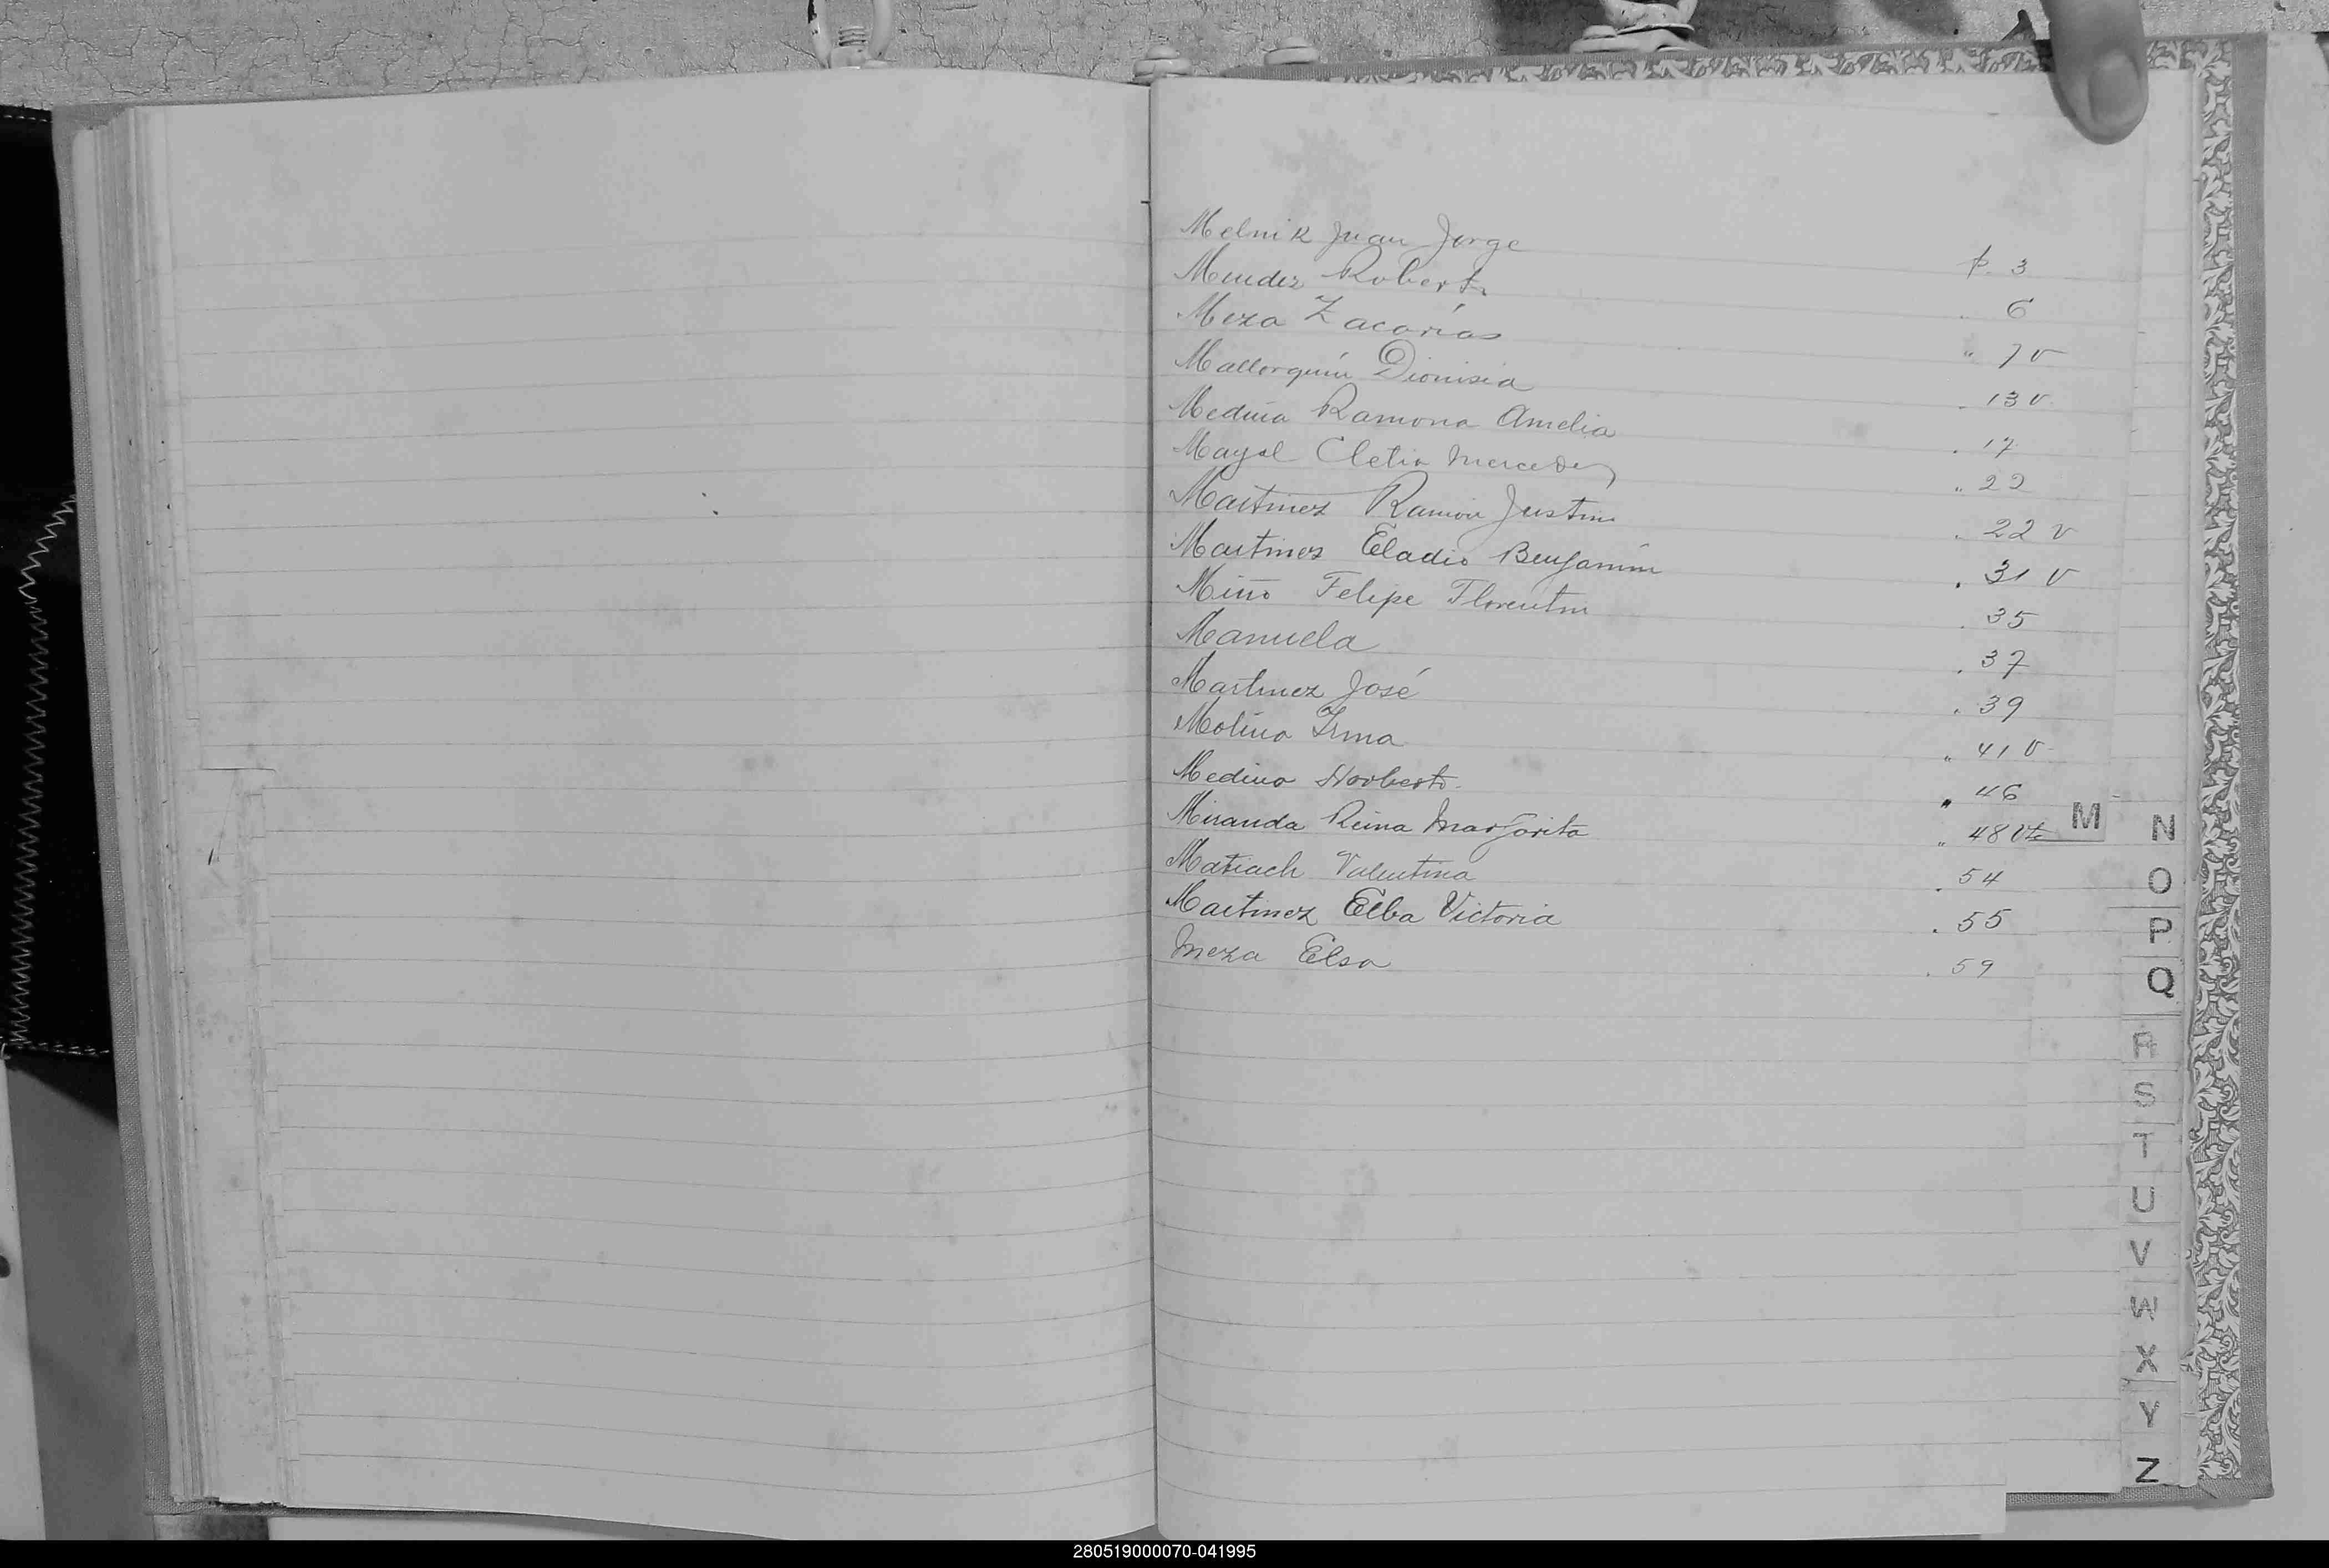 Melnik Juan Jorge p. 3
Mendez Roberto . 6
Meza Zacarías " 7 v
Mallorquín Dionisia . 13 v
Medina Ramona Amelia . 17
Mayol Clelia Mercedes " 22
Martinez Ramón Justino . 22 v
Martinez Eladio Benjamín . 31 v
Miño Felipe Florentin . 35
Manuela . 37
Martinez José . 39
Molina Irma " 41 v
Medina Norberto " 46
Miranda Reina Margarita " 48 vta
Matiach Valentina . 54
Martinez Elba Victoria . 55
Meza Elsa . 59
M
N
O
P
Q
R
S
T
U
V
W
X
Y
Z
280519000070-041995